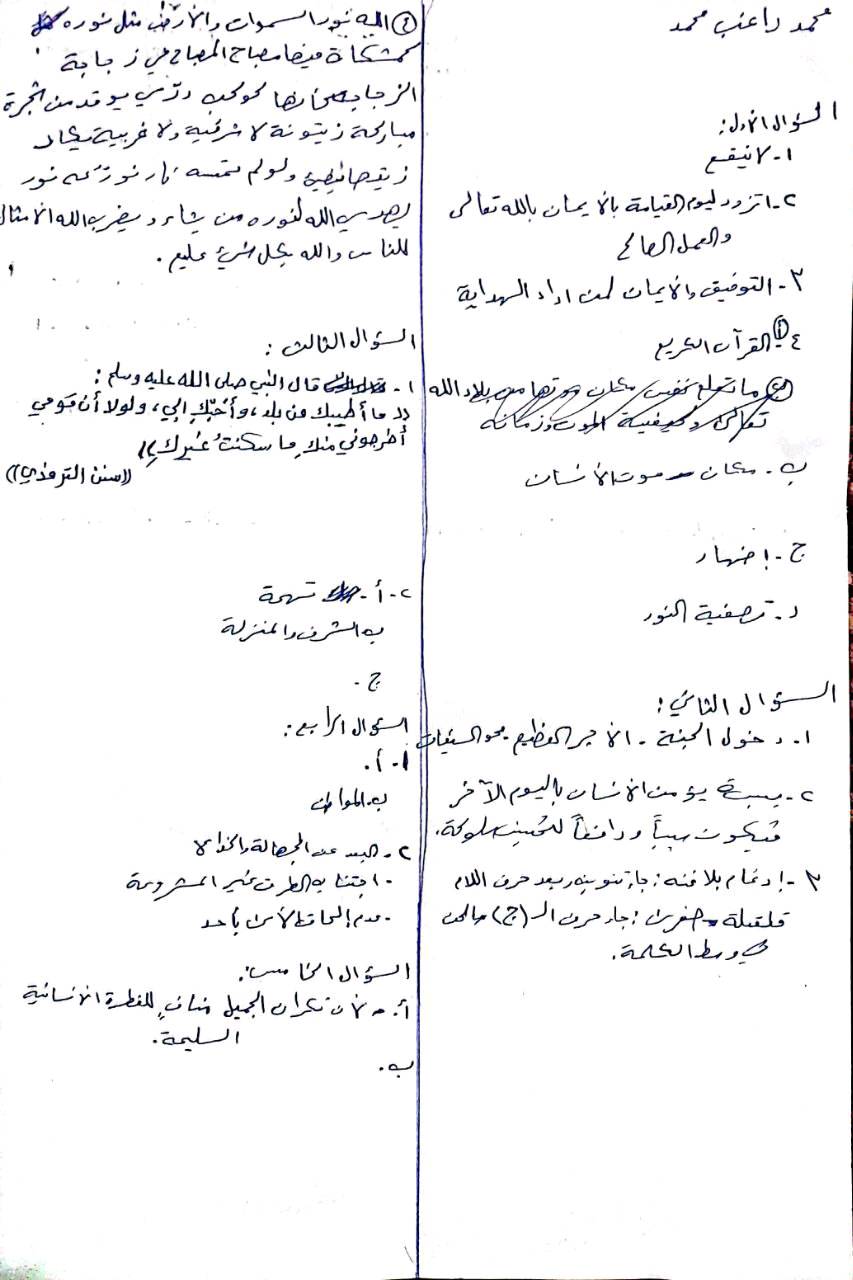 محمد راغب محمد
السؤال الأول:
١- لا ينفع
٢- اتزود ليوم القيامة بالإيمان بالله تعالى
والعمل الصالح
٣- التوفيق والإيمان لمن اراد الهداية
٤ أ القرآن الكريم
ما تعلم نفس مكان موتها من بلاد الله
تعالى وكيفية الموت وزمانه
ب. مكان موت الأنسان
ج. إضهار
د. تصفية النور
السؤال الثاني:
١- دخول الجنة - الأجر العظيم - محو السيئات
٢- يؤمن الأنسان باليوم الآخر
فيكون سبباً ودافعاً لتحسين سلوكه.
٣- إدغام بلا غنة: جاء تنوين وبعد حرف اللام
قلقلة صغرى: جاء حرف الـ (ج) ساكن
في وسط الكلمة.
٤ الله نور السموات والأرض مثل نوره
كمشكاة فيها مصباح المصباح في زجاجة
الزجاجة كأنها كوكب درّي يوقد من شجرة
مباركة زيتونة لا شرقية ولا غربية يكاد
زيتها يضيئ ولو لم تمسه نار نور على نور
يهدي الله لنوره من يشاء ويضرب الله الأمثال
للناس والله بكل شيئ عليم.
السؤال الثالث:
١- قال النبي صلى الله عليه وسلم:
((ما أطيبك من بلد، وأحبّكِ إلي، ولولا أن قومي
أخرجوني منكِ ما سكنتُ غيركِ))
((سنن الترمذي))
٢- أ- تهمة
ب الشرف والمنزلة
ج.
السؤال الرابع:
١- أ.
ب. المواطن
٢- البعد عن الجهالة
- اجتنابه الطرق غير المشروعة
- عدم إلحاق الأذى بأحد
السؤال الخامس:
أ. لأن نكران الجميل منافٍ للفطرة الأنسانية
السليمة.
ب.